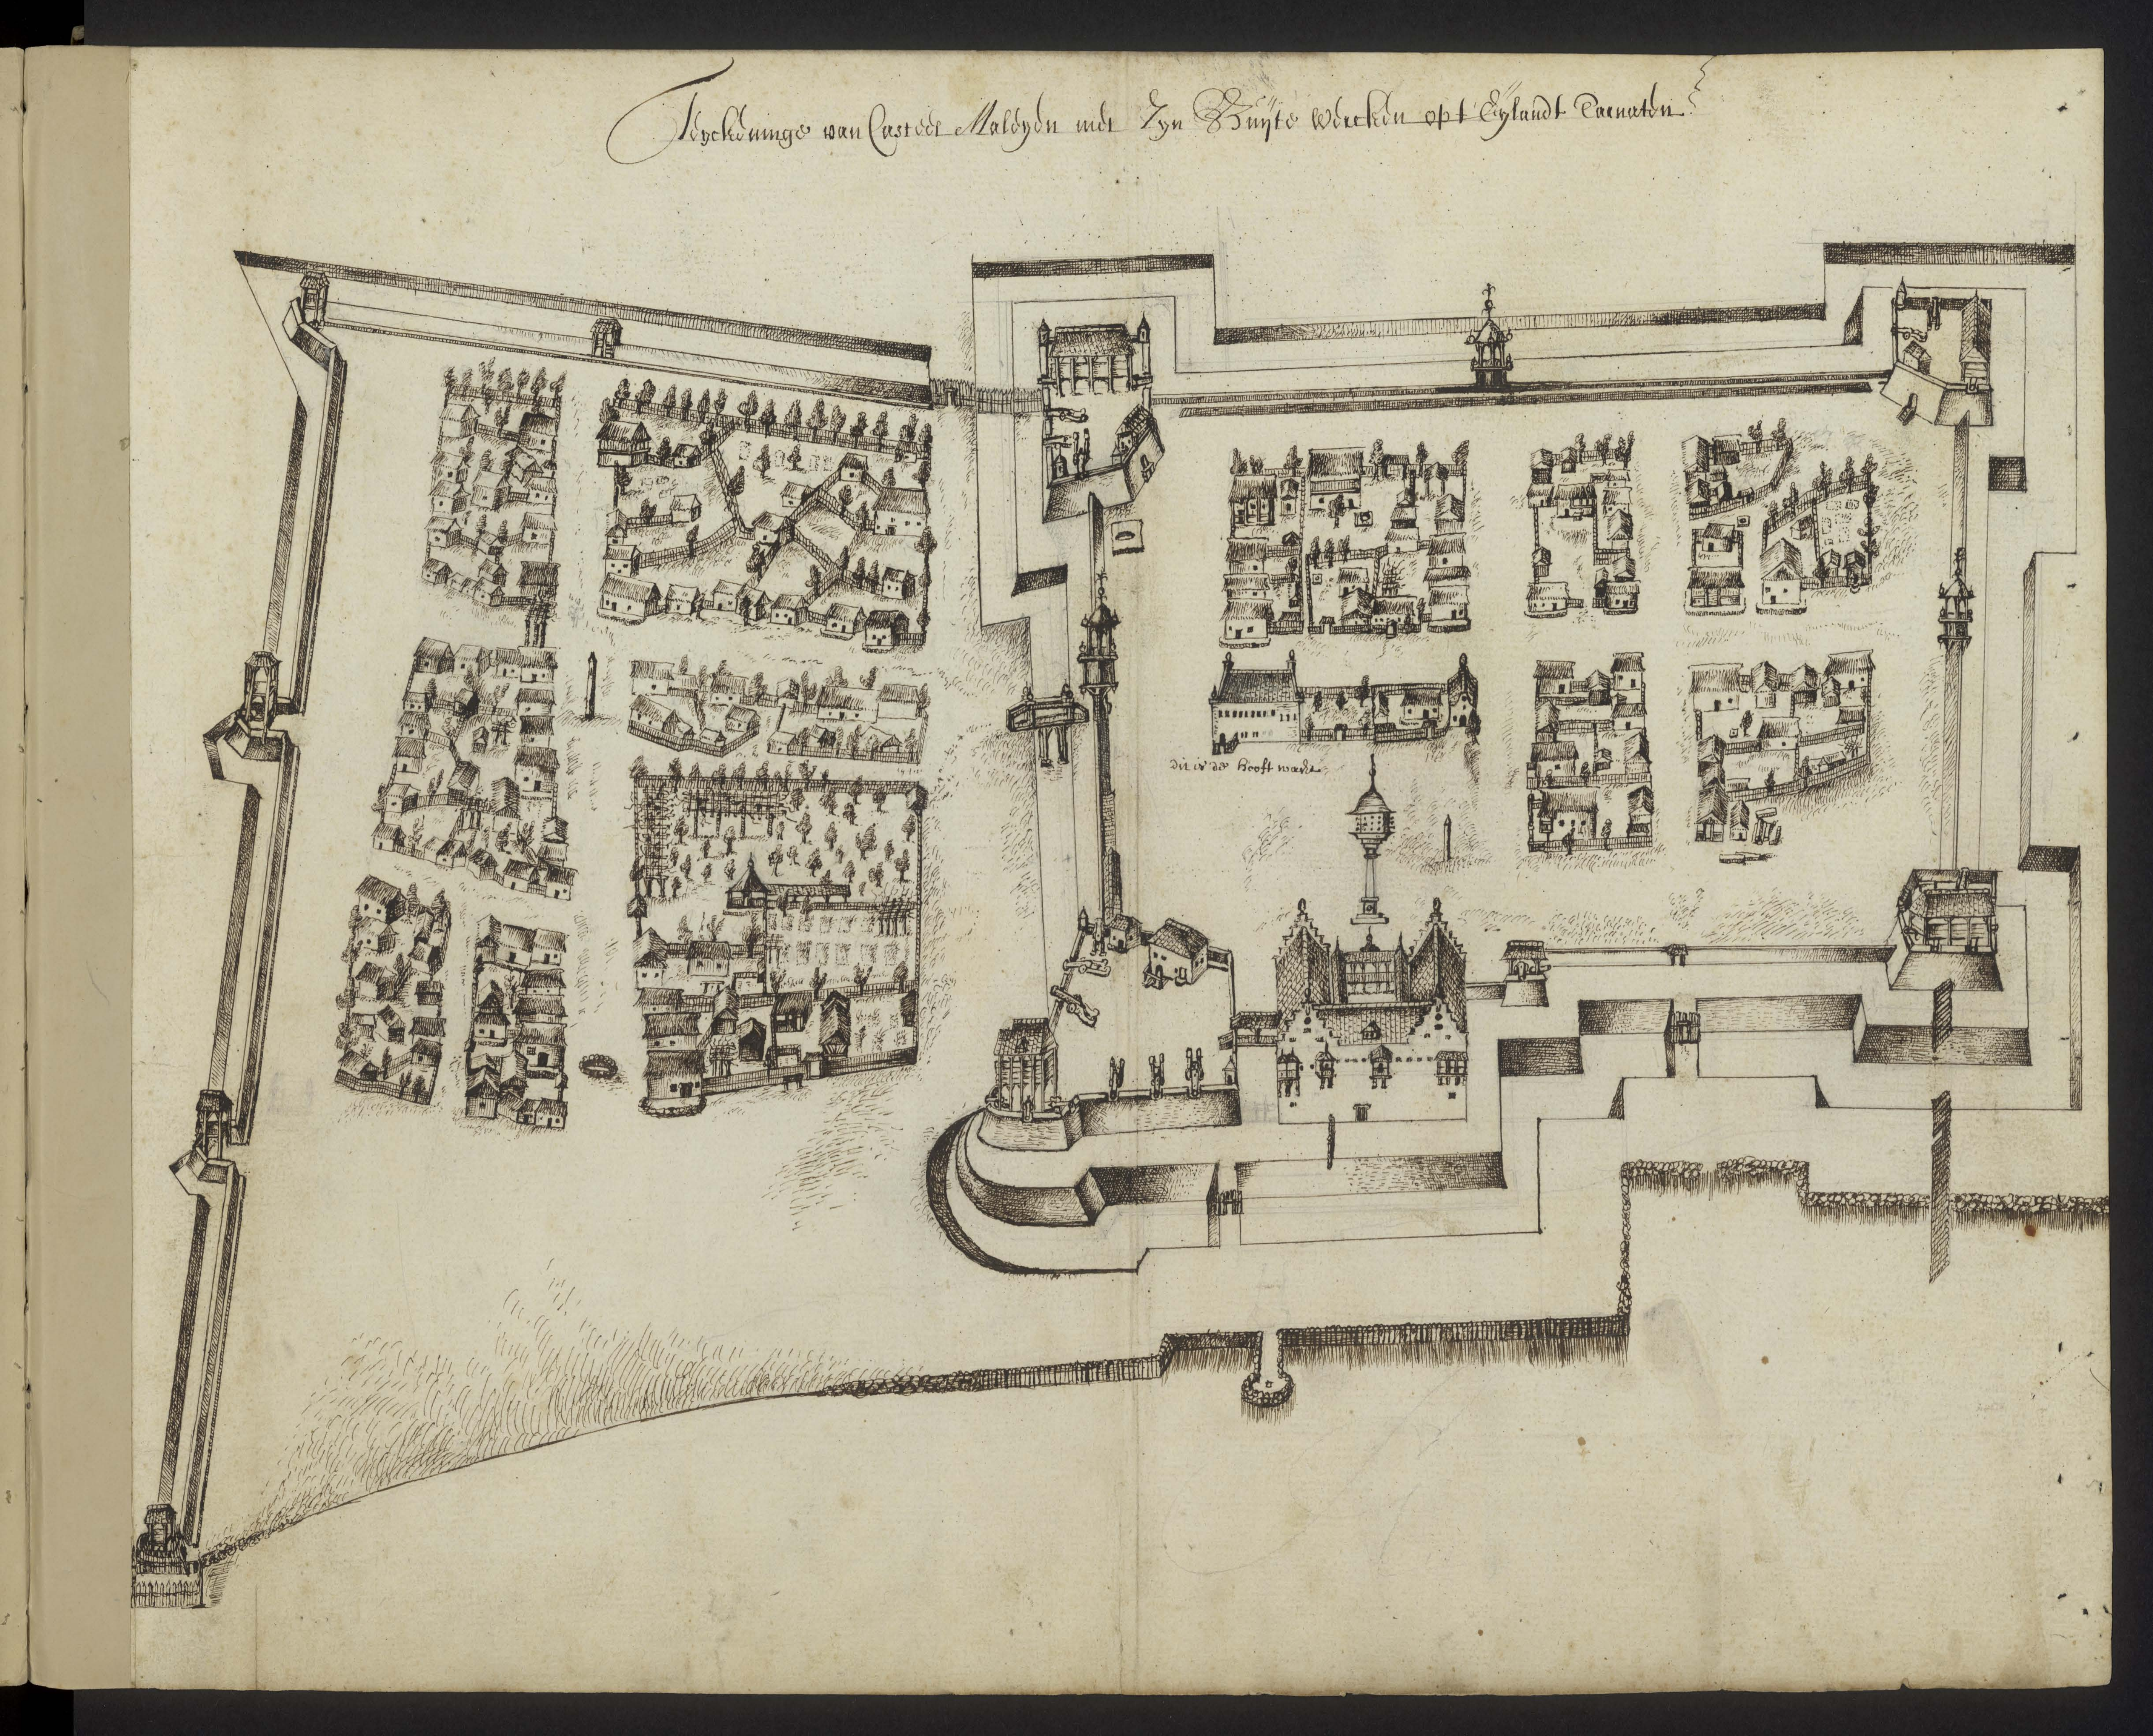 Teyckeninge van Casteel Maleyen met Zyn Buijte Wercken opt Eylandt Tarnaten
dit is de hooft wacht